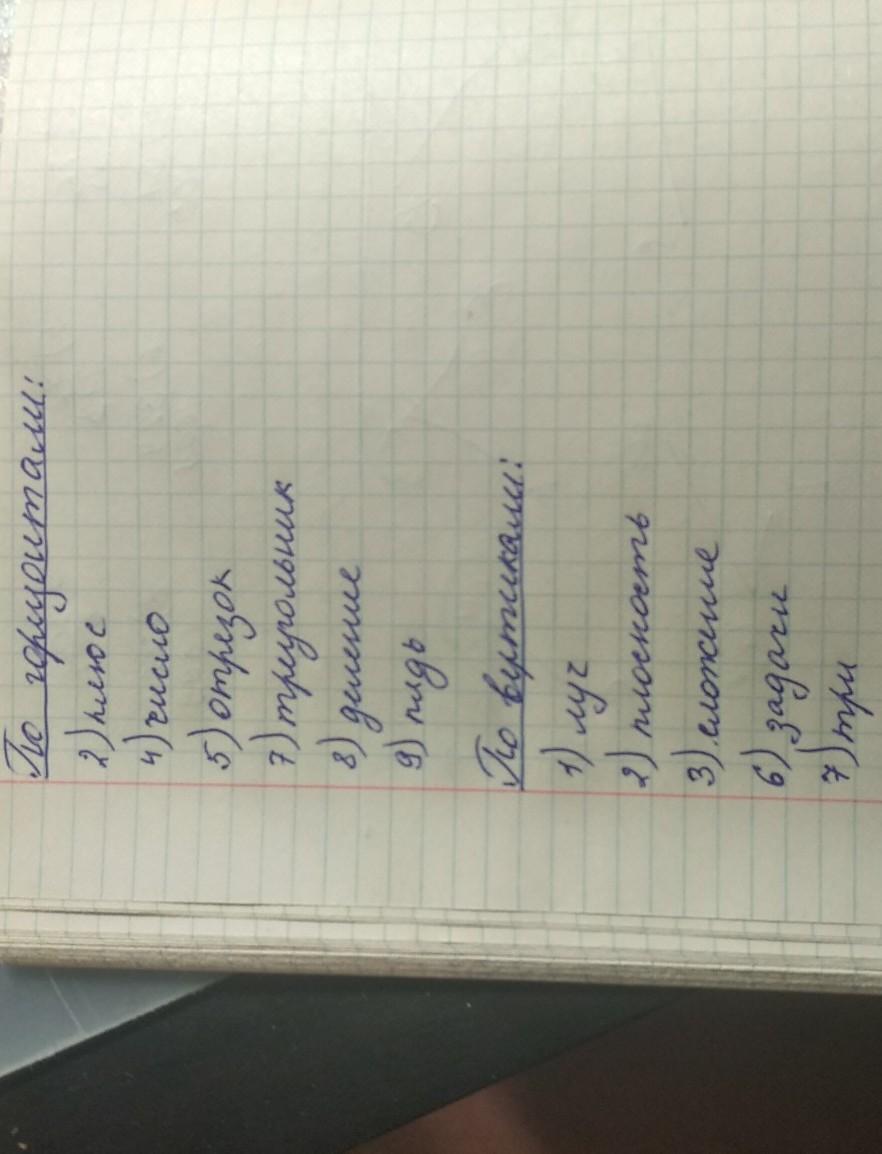 По горизонтали:
2) плюс
4) число
5) отрезок
7) треугольник
8) деление
9) пядь
По вертикали:
1) луч
2) плоскость
3) сложение
6) задачи
7) три